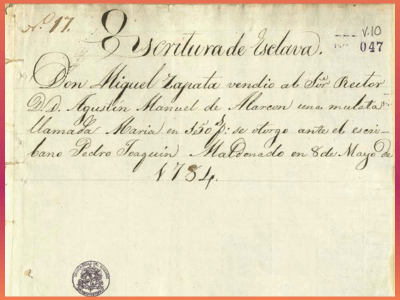 N.º 17.
V.10
047
Escritura de Esclava.
Don Miguel Zapata vendio al Sór Rector
D.D. Agustin Manuel de Marcon una mulata
llamada Maria en 530 p.s se otorgo ante el escri-
bano Pedro Joaquin Maldonado en 8 de Mayo de
1784.